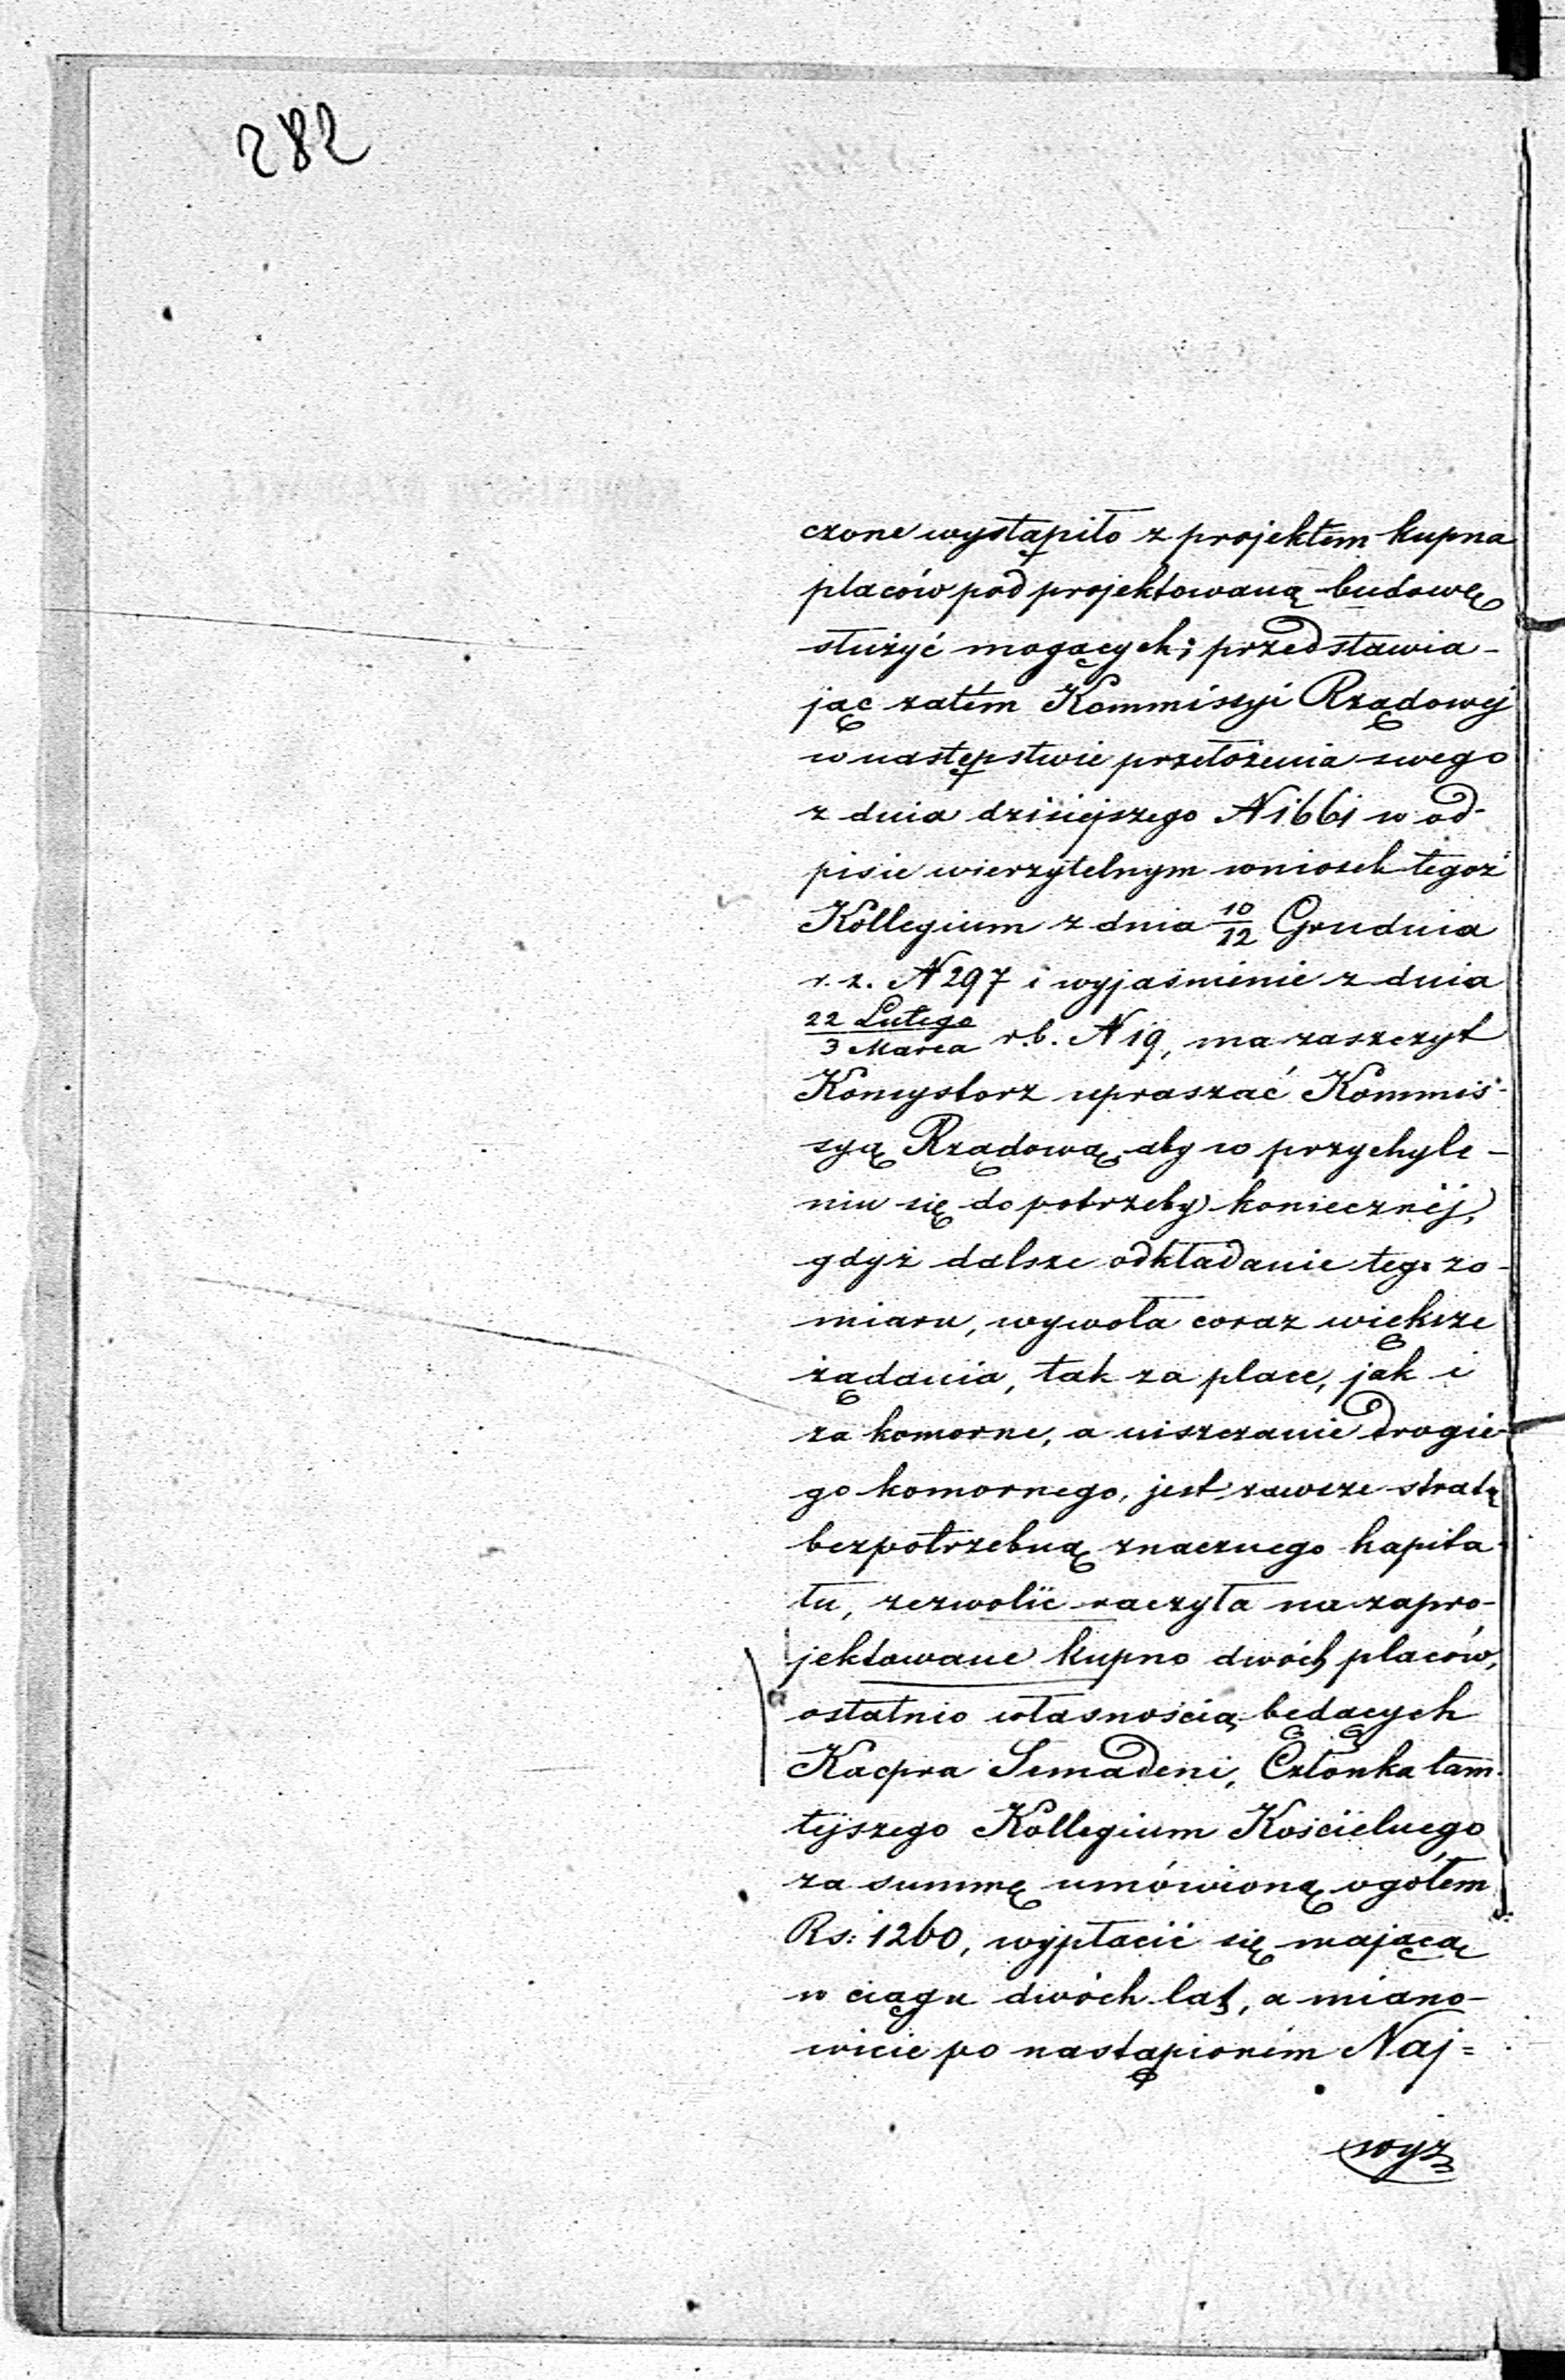 282
czone wystąpiło z projektem kupna
placów pod projektowaną budowę
służyć mogących; przedstawia-
jąc zatém Kommissyi Rządowej
w następstwie przełożenia swego
z dnia dzisiejszego N 1661 w od-
pisie wierzytelnym wniosek tegoż
Kollegium z dnia 10/12 Grudnia
r. z. N 297 i wyjaśnienie z dnia
22 Lutego/3 Marca r.b. N 19, ma zaszczyt
Konsystorz upraszać Kommis-
syą Rządową, aby w przychyle-
niu się do potrzeby koniecznéj,
gdyż dalsze odkładanie tego za-
miaru, wywoła coraz większe
żądania, tak za place, jak i
za komorne, a uiszczanie drogie-
go komornego, jest zawsze stratą
bezpotrzebną znacznego kapita-
łu, zezwolić raczyła na zapro-
jektowane kupno dwóch placów,
ostatnio własnością będących
Kacpra Semadeni, Członka tam-
tejszego Kollegium Kościelnego
za summę umówioną ogółem
Rs: 1260, wypłacić się mającą
w ciągu dwóch lat, a miano-
wicie po nastąpioném Naj=
wyż